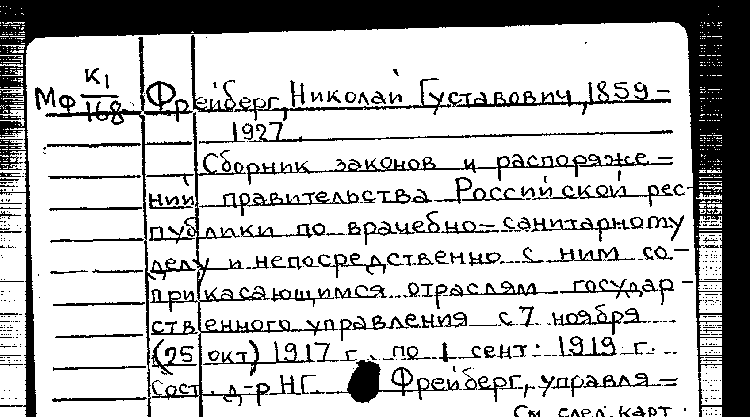 Мф К1/168 Фрейберг, Николай Густавович, 1859-
1927.
Сборник законов и распоряже=
ний правительства Российской рес-
публики по врачебно-санитарному
делу и непосредственно с ним со-
прикасающимся отраслям государ-
ственного управления с 7 ноября
(25 окт) 1917 г. по 1 сент. 1919 г.
Сост. д-р Н.Г. Фрейберг, управля=
См. след. карт.